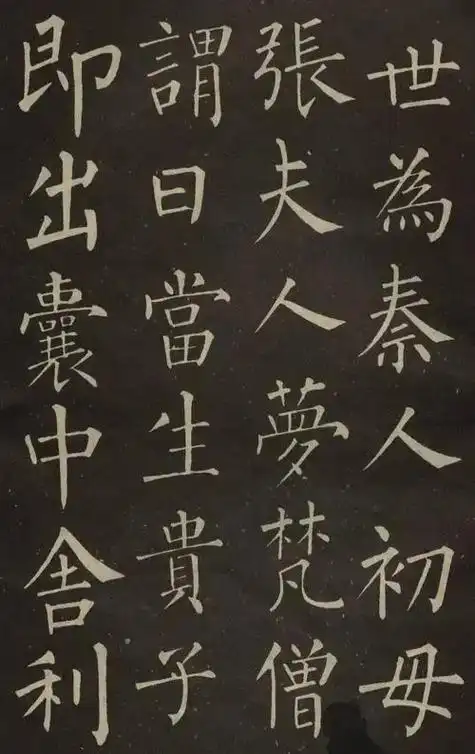 世為秦人初母
張夫人夢梵僧
謂曰當生貴子
即出囊中舎利